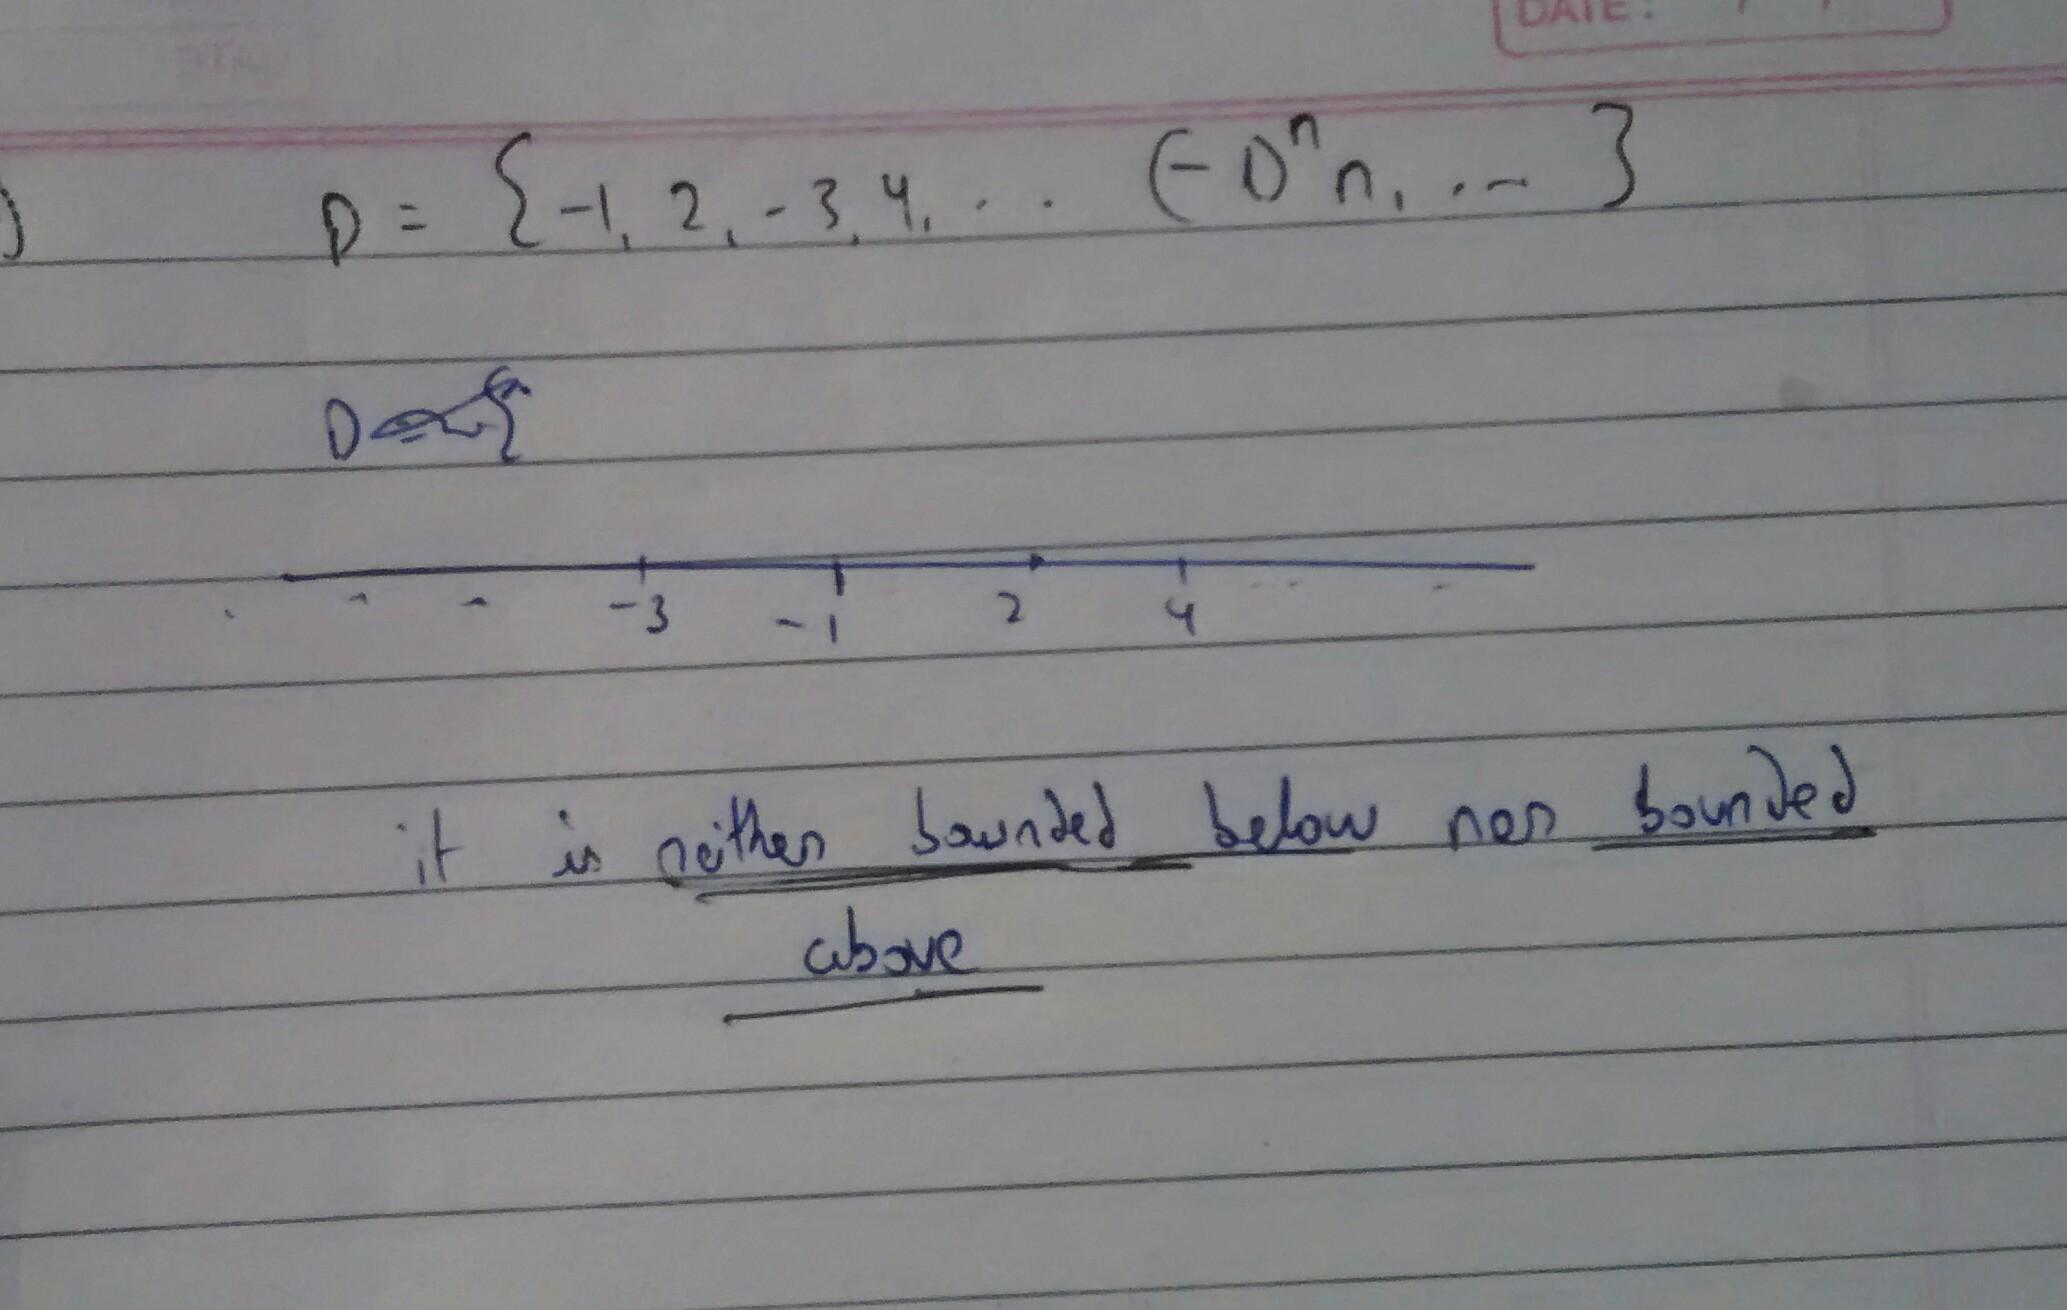 DATE: / /
D = {-1, 2, -3, 4, . . (-1)ⁿn, ... }
D = {
-3 -1 2 4
it is neither bounded below nor bounded
above